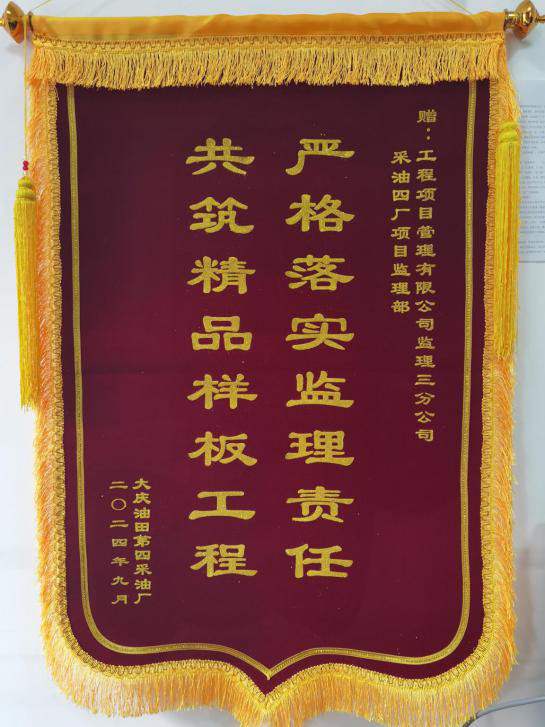 赠：工程项目管理有限公司监理三分公司
采油四厂项目监理部
严格落实监理责任
共筑精品样板工程
大庆油田第四采油厂
二〇二四年九月